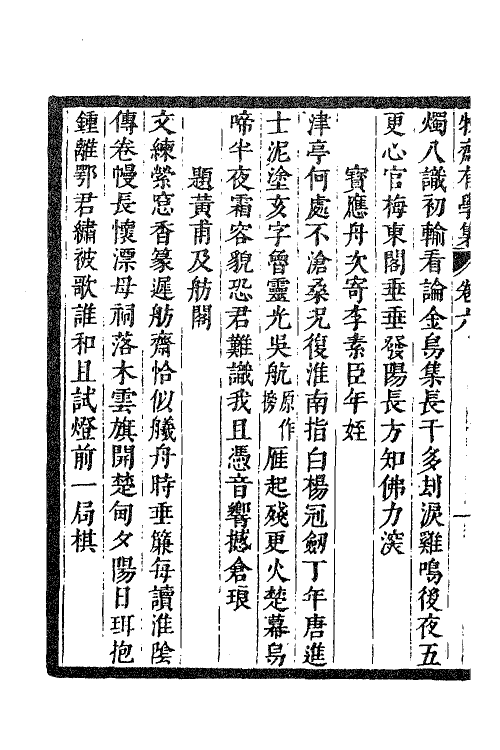 牧齋有學集 卷六
燭八識初輪看論金烏集長干多刦淚雞鳴後夜五
更心官梅東閣垂垂發陽長方知佛力㴱
寶應舟次寄李素臣年姪
津亭何處不滄桑况復淮南指白楊冠劒丁年唐進
士泥塗亥字魯靈光吳航原作榜雁起殘更火楚幕烏
啼半夜霜容貌恐君難識我且憑音響撼倉琅
題黃甫及舫閣
文練縈窓香篆遲舫齋恰似艤舟時垂簾每讀淮陰
傳卷幔長懷漂母祠落木雲旗開楚甸夕陽日珥抱
鍾離鄂君繡被歌誰和且試燈前一局棋